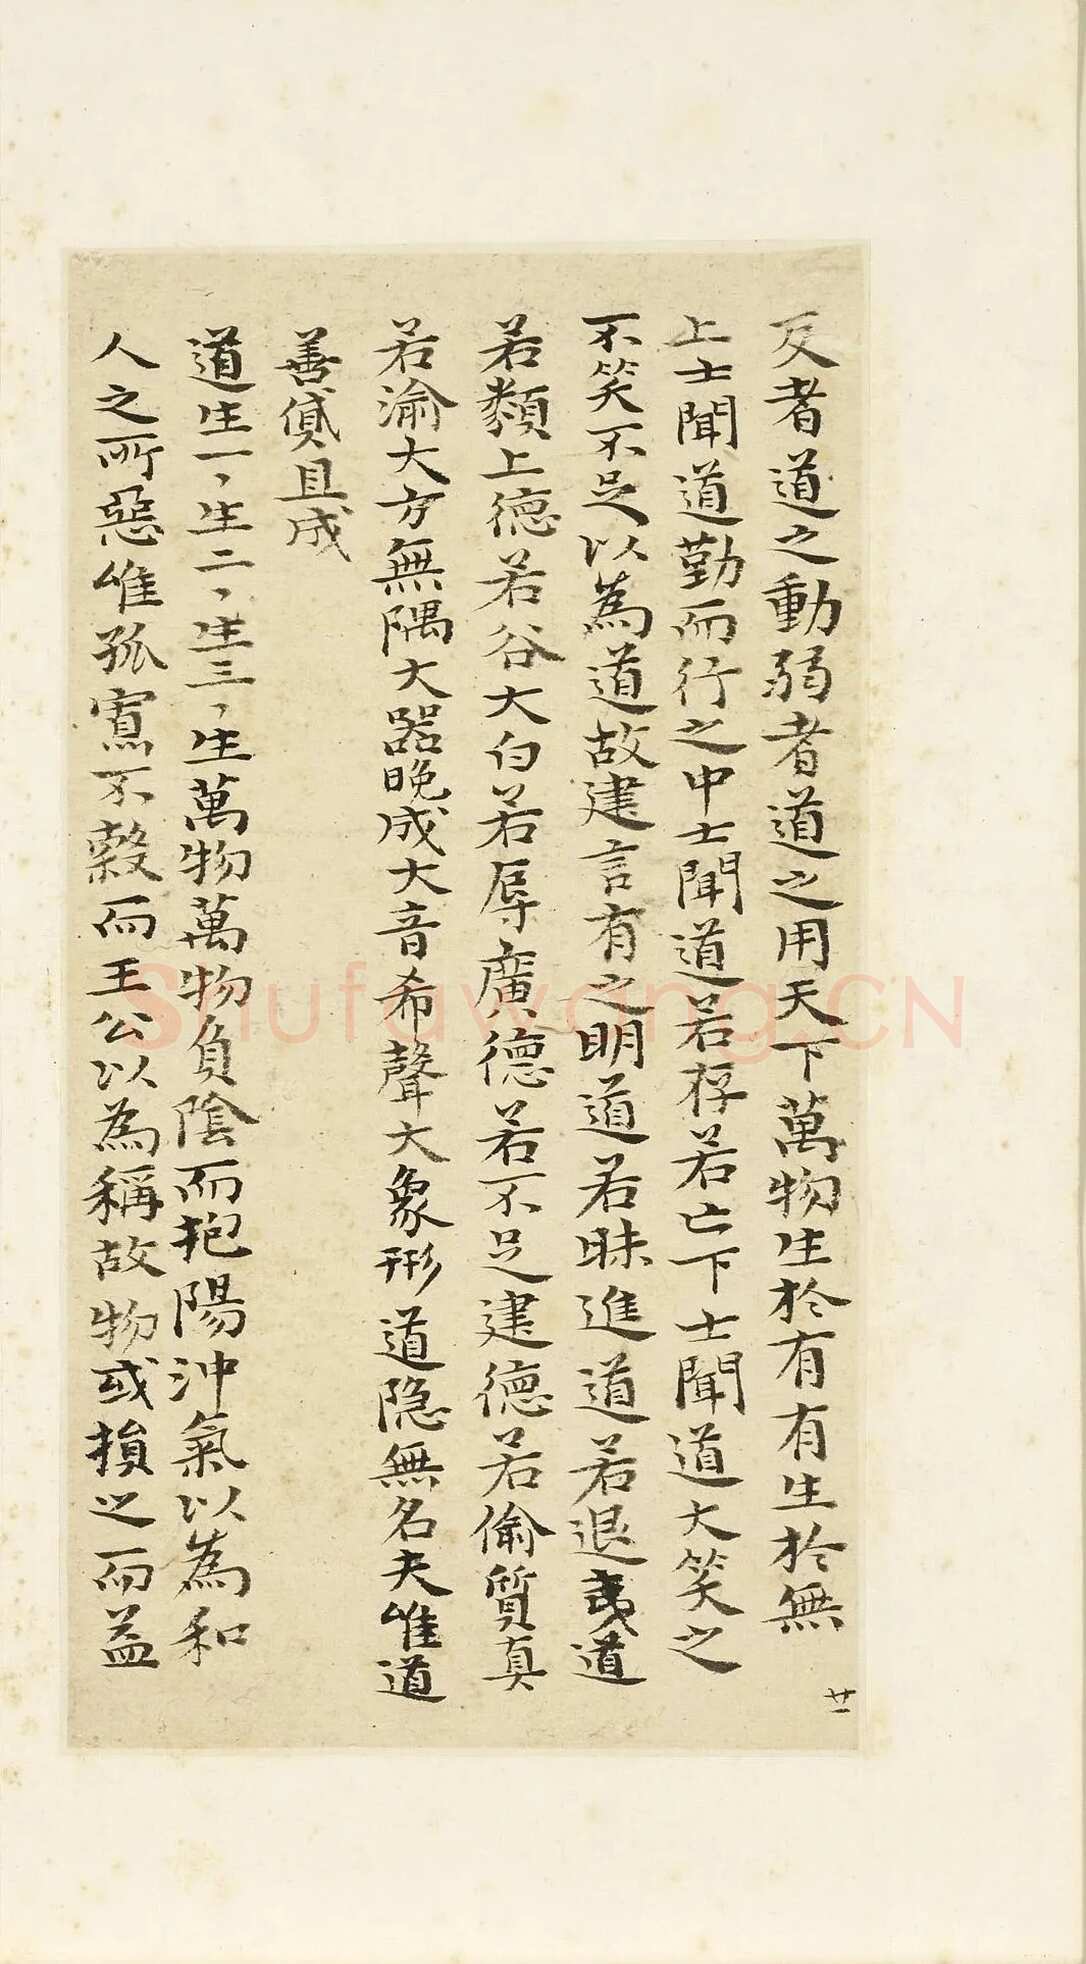 反者道之動弱者道之用天下萬物生於有有生於無
上士聞道勤而行之中士聞道若存若亡下士聞道大笑之
不笑不足以為道故建言有之明道若昧進道若退夷道
若纇上德若谷大白若辱廣德若不足建德若偷質真
若渝大方無隅大器晚成大音希聲大象形道隐無名夫唯道
善貸且成
道生一、生二、生三、生萬物萬物負陰而抱陽沖氣以為和
人之所惡唯孤寡不穀而王公以為稱故物或損之而益
廿一
Shufawang.CN